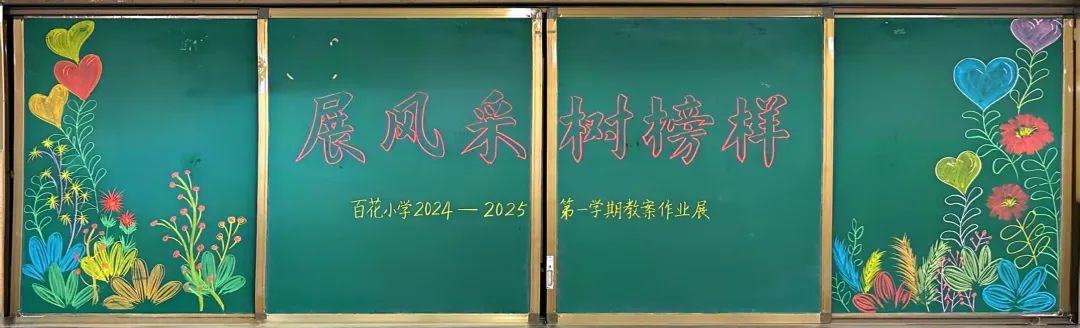 展风采 树榜样
百花小学2024—2025 第一学期教案作业展